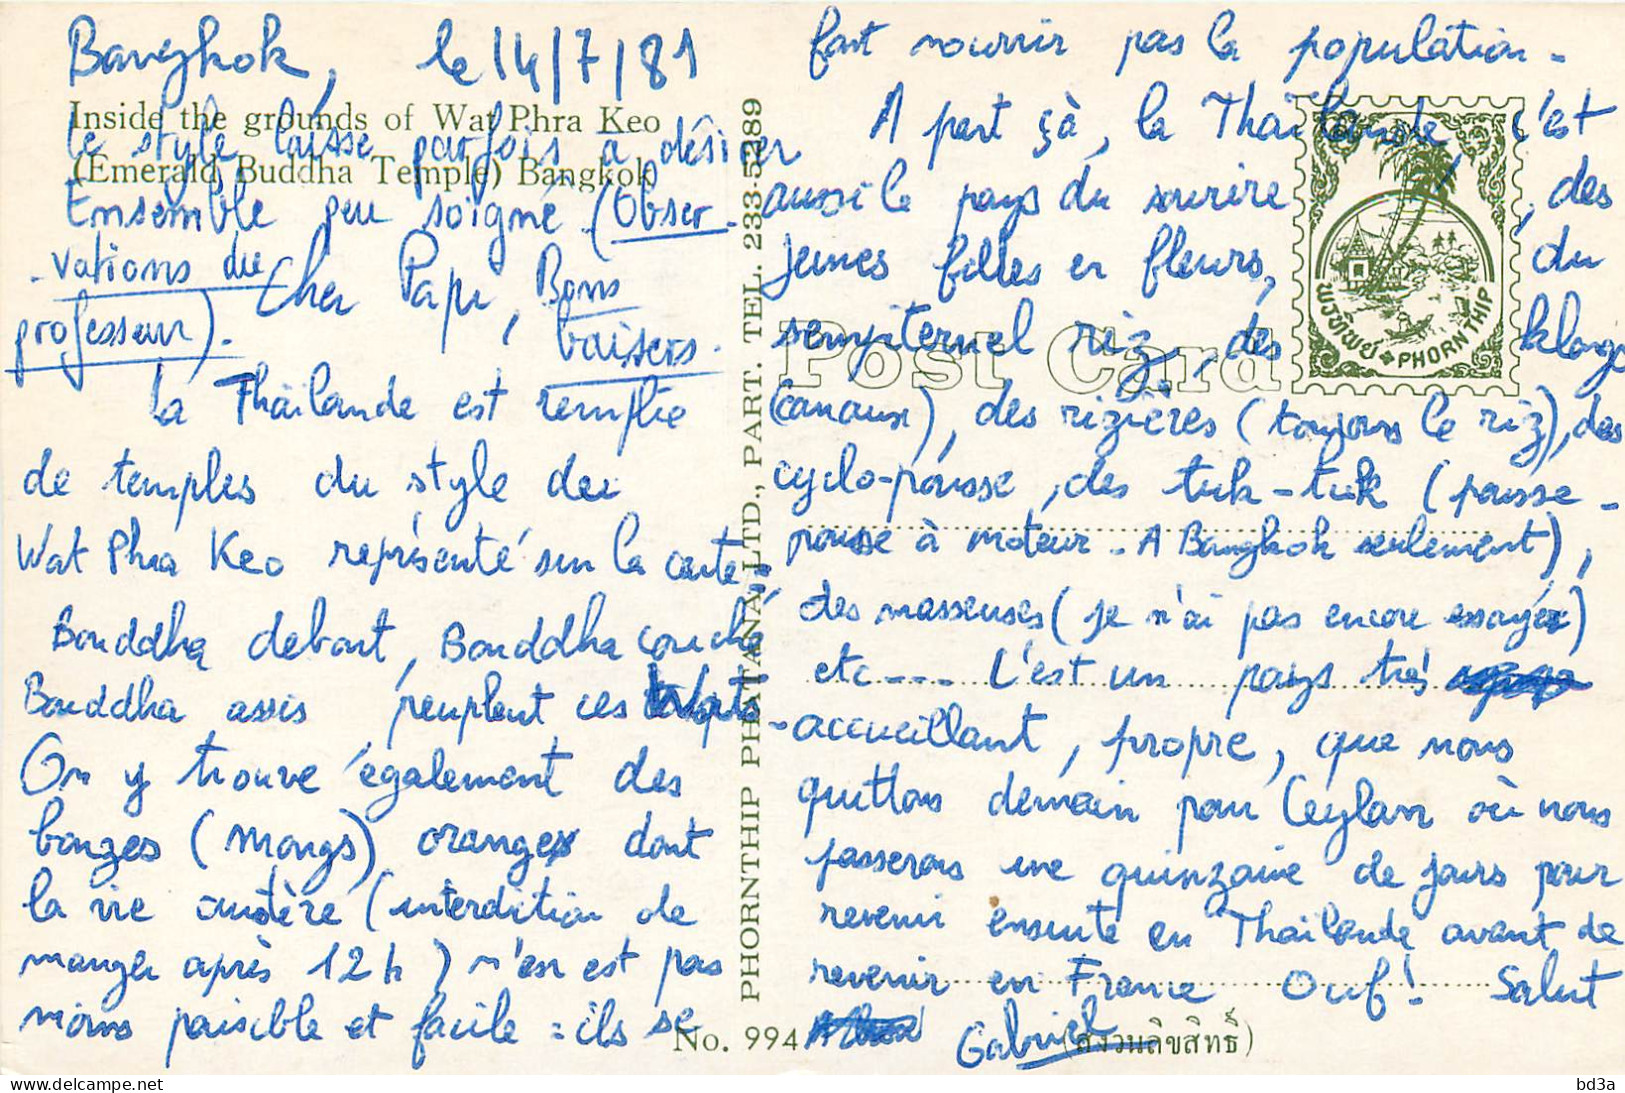 Bangkok, le 14/7/81
Inside the grounds of Wat Phra Keo
Le style laisse parfois à désirer
(Emerald Buddha Temple) Bangkok
Ensemble peu soigné (Obser-
-vations du
professeur).
Cher Papi, Bons
baisers.
La Thaïlande est remplie
de temples du style du
Wat Phra Keo représenté sur la carte,
Bouddha debout, Bouddha couché
Bouddha assis peuplent ces
On y trouve également des
bonzes (mongs) oranges dont
la vie austère (interdition de
manger après 12 h) n'en est pas
moins paisible et facile : ils se
No. 994
PHORNTHIP PHATANA LTD., PART. TEL. 233-5289
font nourrir pas la population.
A part çà, la Thaïlande, c'est
aussi le pays du sourire, des
jeunes filles en fleurs, du
sempiternel riz, des klongs
Post Card
พรทิพย์ PHORNTHIP
(canaux), des rizières (toujours le riz), des
cyclo-pousse, des tuk-tuk (pousse-
pousse à moteur. A Bangkok seulement),
des masseuses (je n'ai pas encore essayé)
etc---- C'est un pays très
-accueillant, propre, que nous
quittons demain pour Ceylan où nous
passerons une quinzaine de jours pour
revenir ensuite en Thaïlande avant de
revenir en France Ouf! Salut
Gabriel
(สงวนลิขสิทธิ์)
bd3a